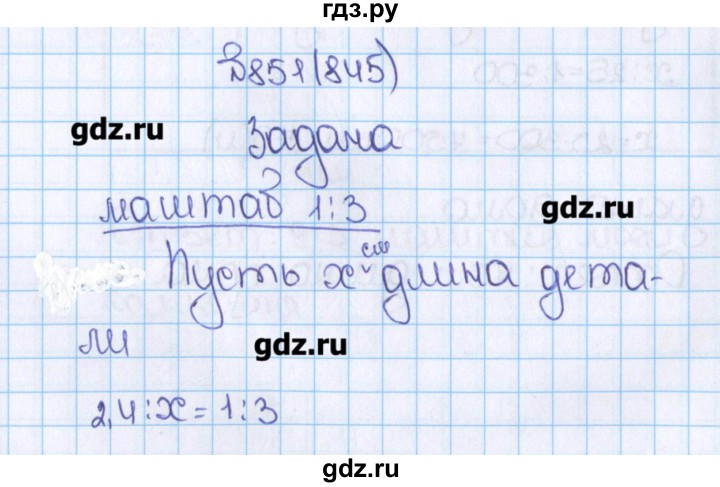 гдз.ру
№851(845)
gdz.ru
Задача
маштаб 1:3
gdz.ru
Пусть x см - длина дета-
ли
gdz.ru
2,4:x=1:3
gdz.ru